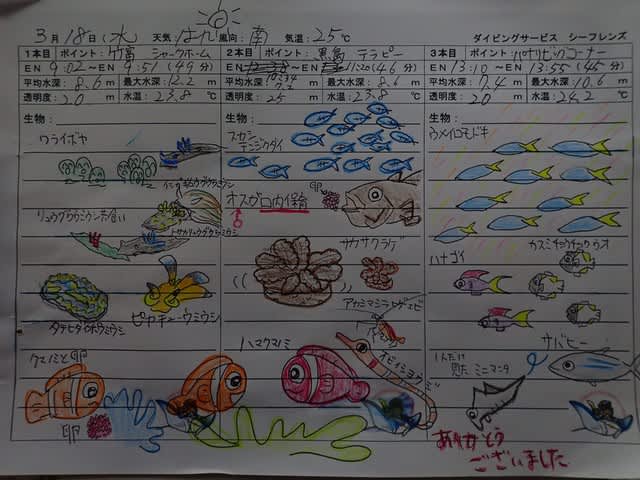 3月18日(水) 天気 はれ 風向: 南 気温: 25℃ ダイビングサービス シーフレンズ
1本目 ポイント: 竹富 シャークホーム
EN 9:02〜EN 9:51 (49分)
平均水深: 8.6 m 最大水深: 12.2 m
透明度: 20 m 水温: 23.8 ℃
生物:
ワライボヤ
リュウグウウミウシ
タテヒダイボウミウシ
ピカチューウミウシ
クマノミと卵
卵
2本目 ポイント: 黒島 テラピー
11:20 (46分)
平均水深: m 最大水深: 8.6 m
透明度: 25 m 水温: 23.8 ℃
生物:
スカシ
テンジクダイ
オスが口内保育
卵
サカサクラゲ
アカシマシラヒゲエビ
ハマクマノミ
イシヨウジ
3本目 ポイント: パナリビッグコーナー
EN 13:10〜EN 13:55 (45分)
平均水深: 7.4 m 最大水深: 10.6 m
透明度: 20 m 水温: 24.2 ℃
生物:
ウメイロモドキ
カスミチョウチョウウオ
ハナゴイ
サバヒー
1人だけ
見た ミニマンタ
ありがとう
ございました